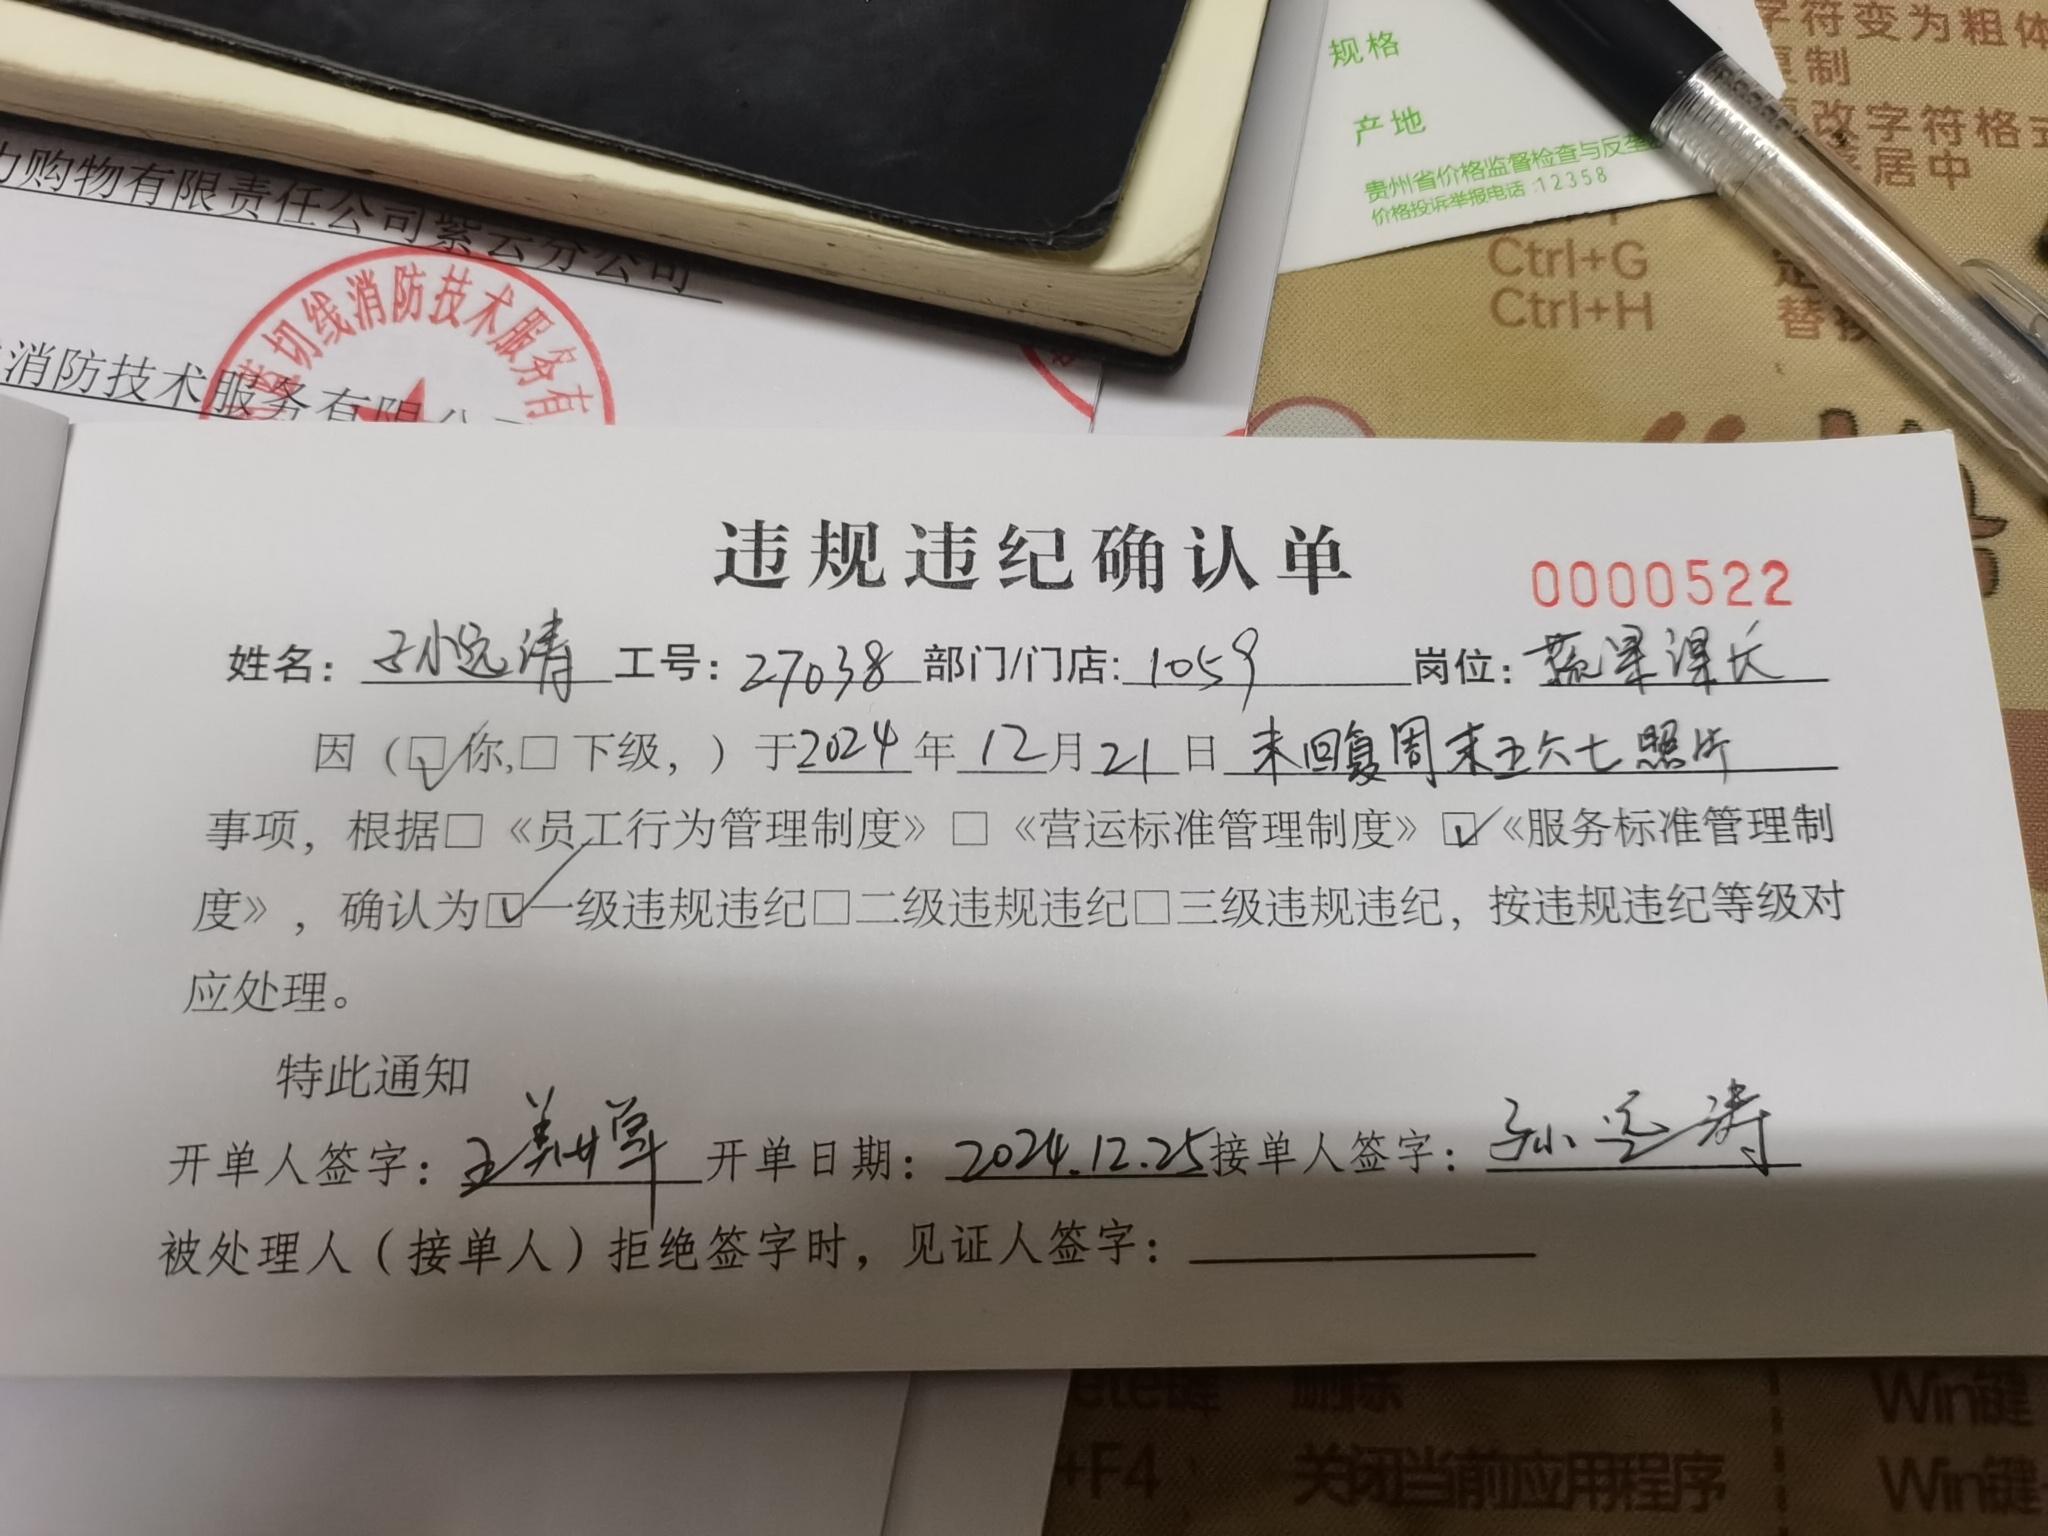 规格
产地
贵州省价格监督检查与反垄
价格投诉举报电话:12358
字符变为粗体
复制
改字符格式
居中
Ctrl+G
Ctrl+H
替换
购物有限责任公司紫云分公司
切线消防技术服务有
消防技术服务有限公司
违规违纪确认单
0000522
姓名: 孙远涛 工号: 27038 部门/门店: 1059 岗位: 蔬果课长
因(☑你,□下级,)于2024年12月21日 未回复周末五六七照片
事项,根据□《员工行为管理制度》□《营运标准管理制度》☑《服务标准管理制
度》,确认为☑一级违规违纪□二级违规违纪□三级违规违纪,按违规违纪等级对
应处理。
特此通知
开单人签字: 王 开单日期: 2024.12.25 接单人签字: 孙远涛
被处理人(接单人)拒绝签字时,见证人签字:
ete键 删除 Win键
+F4 关闭当前应用程序 Win键